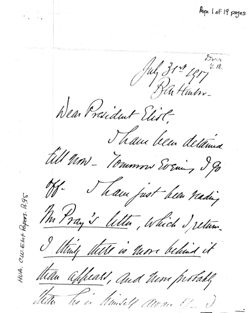 Page 1 of 19 pages
July 31st, 1917
Bar Harbor.
Dear President Eliot,
I have been detained
till now – Tomorrow Evening I go
off – I have just been reading
Mr Pray's letter, which I return.
I think there is more behind it
than appears, and more probably
than he is himself aware
HUA, CW Eliot Papers, B.95